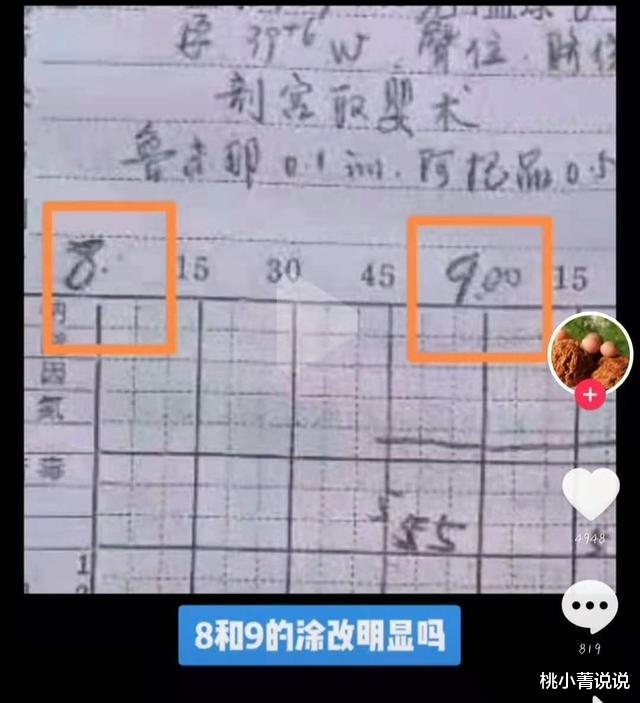 孕 39⁺⁶ W 臀位.
剖宫取婴术
鲁米那 0.1 im. 阿托品 0.5
8. 15 30 45 9.00 15
因
氟
毒
5 5 5
1
4948
819
8和9的涂改明显吗
桃小菁说说